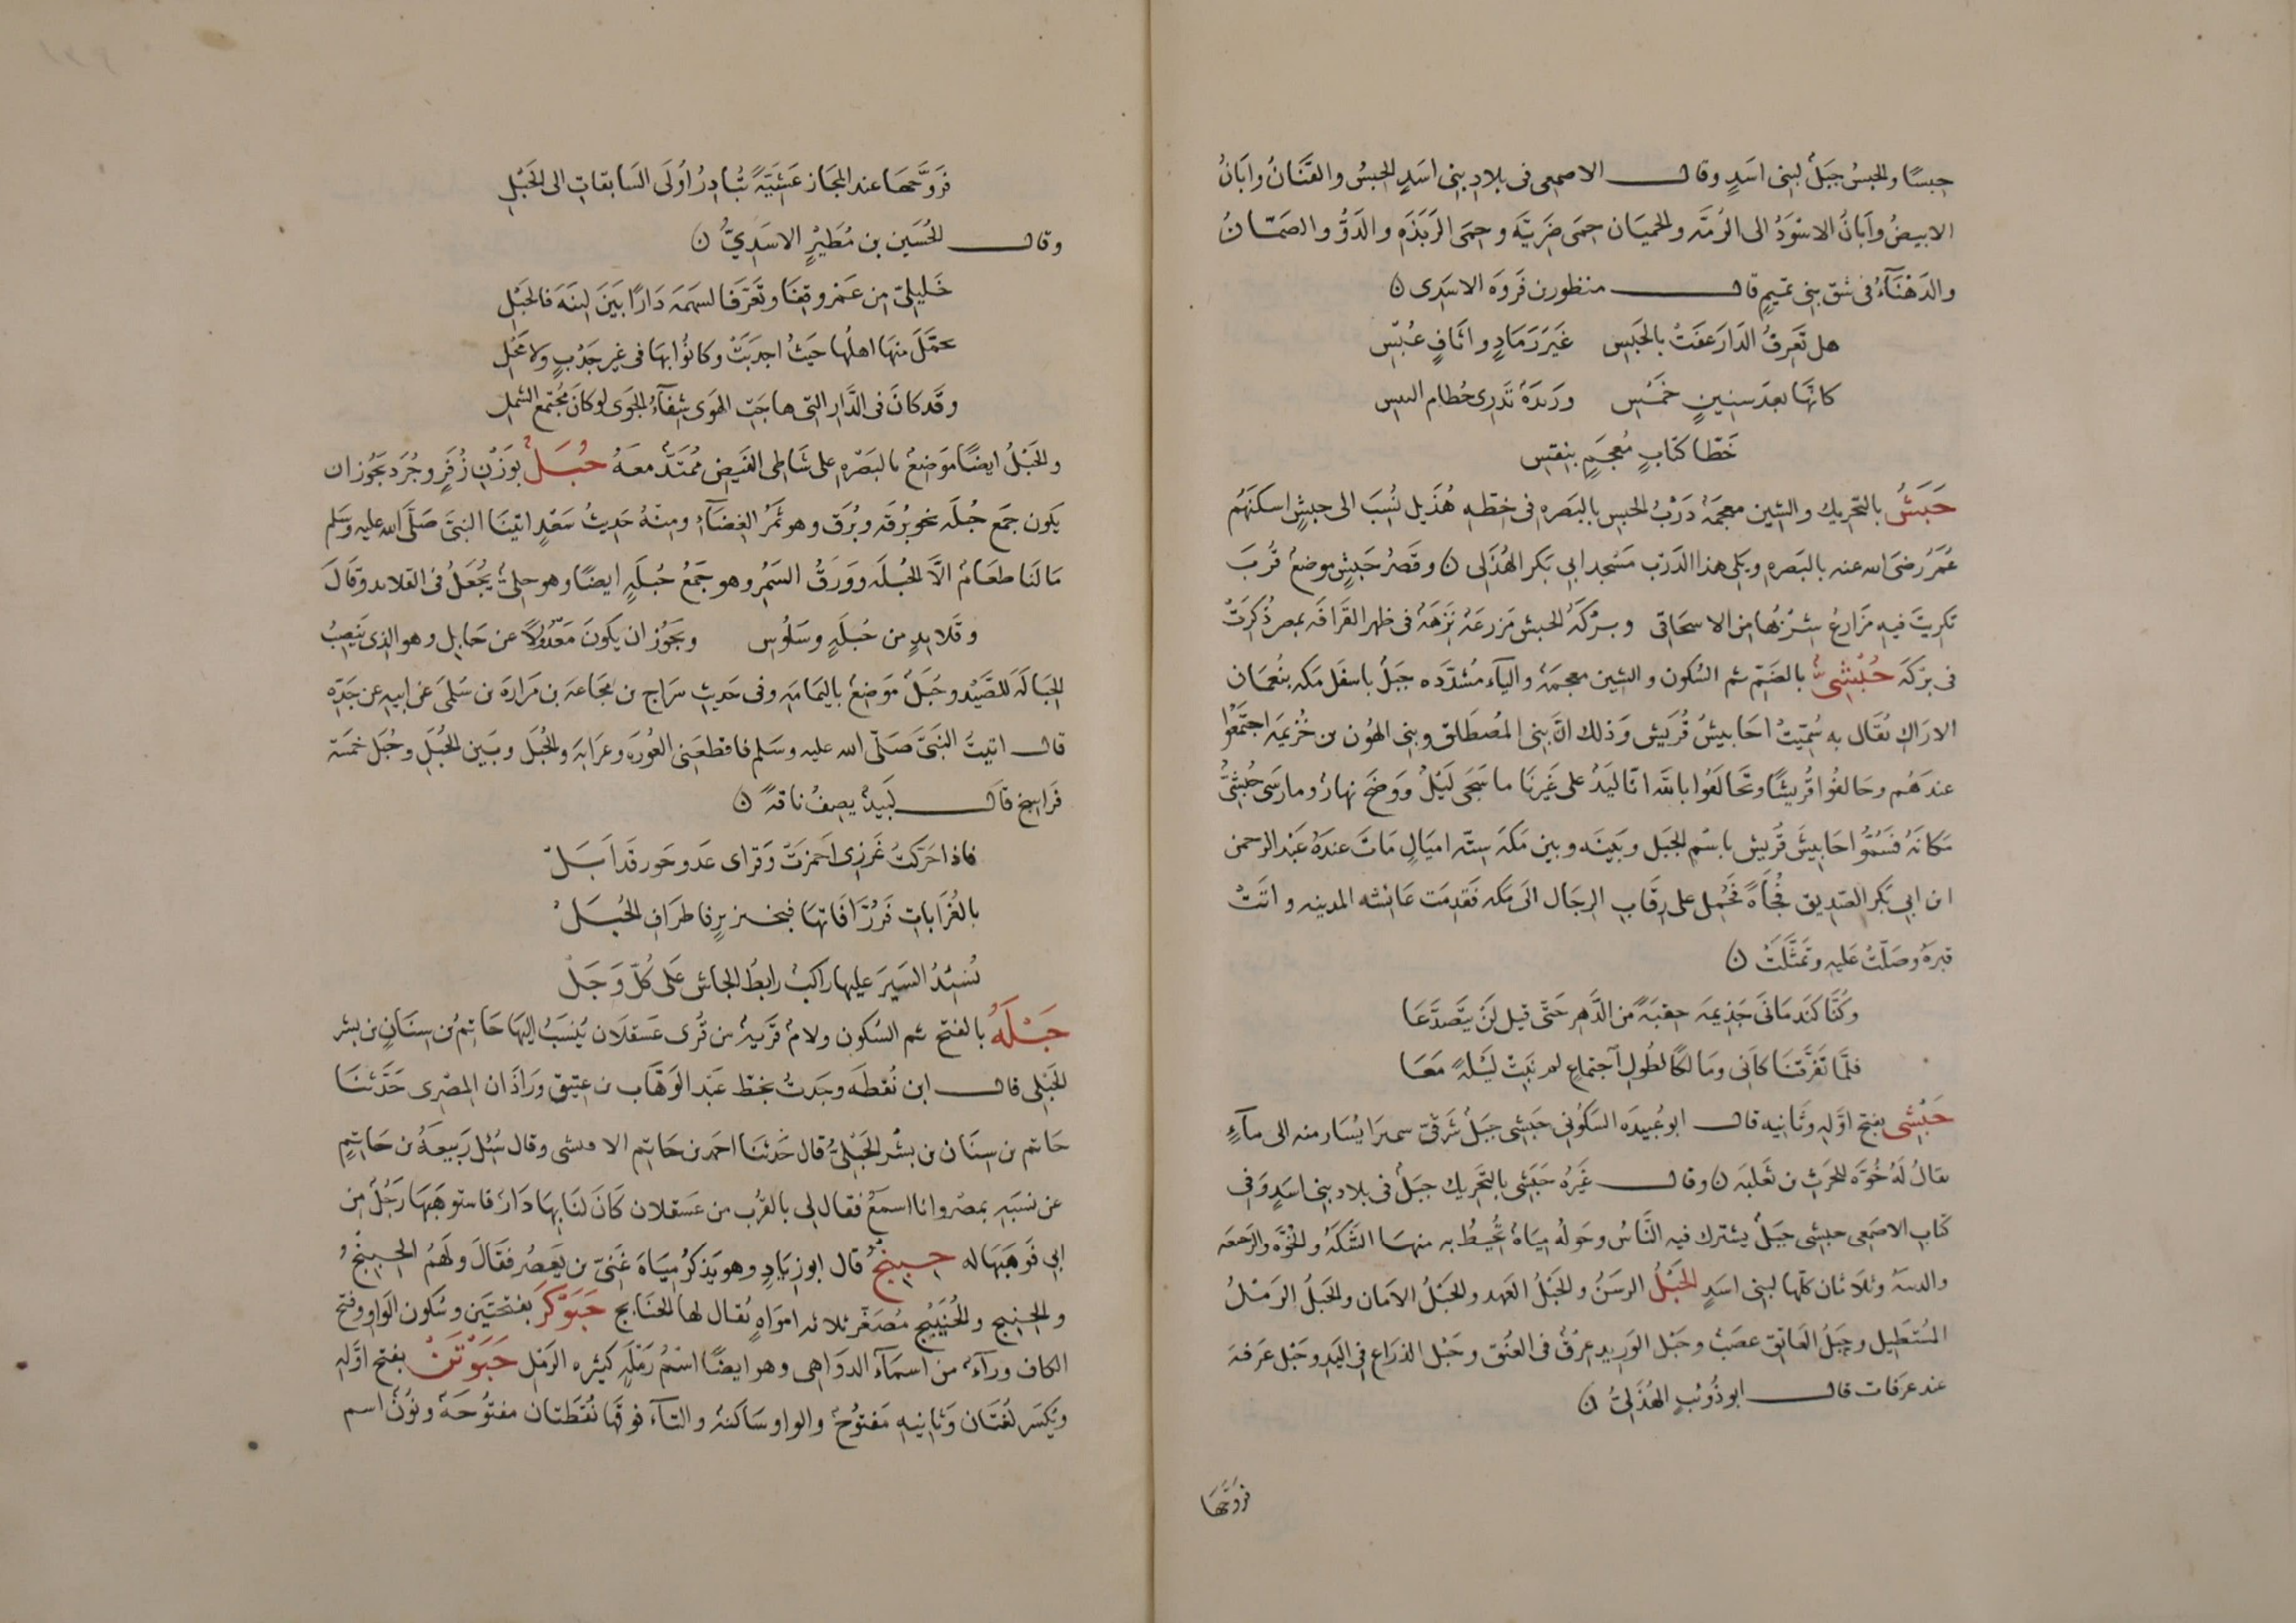 حبسًا والحبسُ جبَلٌ لبنى اسَدٍ وقال الاصمعى فى بلادِ بنى اسَدٍ الحِبسُ والقَنَانُ وابَانُ
الابيضُ وأبَانُ الاسْوَدُ الى الرُمَّه والحميَان حِمَى ضَرِيَّه وحِمَى الرَبَذَه والدَوُّ والصَمّانُ
والدَهْنَآءُ فى شقّ بنى تميمٍ قال منظور بن فَروَه الاسَدى ن
هل تَعِرفُ الدَارَ عفَتْ بالحَبْسِ غَيَرَ رَمَادٍ واثَافٍ عُبْسِ
كانّهَا بعدَ سِنينٍ خَمْسِ ورَيدَةٌ تَذرِى حُطام اليبسِ
خَطّا كتابٍ مُعجَمٍ بنقسِ
حَبَشُ بالتحريك والشِين معجمَهٌ دَرْبُ الحبس بالبَصره فى خِطّهِ هُذَيل نُسِبَ الى حبشٍ اسكنَهُم
عُمَرُ رضىَ الله عنه بالبَصرهِ ويَلى هذا الدَرب مَسْجد ابى بَكر الهُذَلى ن وقَصْرُ حَبَشٍ موضعٌ قُربَ
تكريتَ فيهِ مَزارعُ شِرْبُها من الاسحَاقى وبرْكَهُ الحبش مَزرعَهٌ نَزِهَهٌ فى ظهر القَرافَه بمصرَ ذُكِرَتْ
فى بِرْكَه حُبْشِىٌّ بالضَمّ ثم السُكون والشِين معجمَهٌ واليآء مُشدَّدَه جبَلٌ باسفَل مَكه بنُعمَان
الاراكِ يُقَال به سُمّيتْ احَابيشُ قُرَيش وَذلك انّ بَنى المُصطَلق وبنى الهُون بن خُزيمَه اجتمَعُوا
عندَهُم وحَالفُوا قُريشًا وتحالَفُوا بالله انّا لَيَدٌ على غَيِرنَا ما سَجَى لَيْلٌ ووَضحَ نهارٌ وما رسَى حُبْشىٌّ
مَكانَهُ فسُمُّوا احَابيشَ قُريش باسْمِ الجَبَل وبَينَه وبين مَكه سِتّه اميَالٍ مَاتَ عندَهُ عَبْد الرحمن
ابن ابى بَكر الصِدِيق فُجاَةً فحُمِل على رِقَابِ الرجَال الى مكه فَقدِمَت عَائشه المدينه واتَتْ
قبرَهُ وصَلّتْ عَليهِ وتمثَّلَتْ ن
وكُنّا كنَدمَانَىْ جَذِيمَه حِقبَةً من الدَّهِر حَتّى قيل لَنْ يَتَصدَّعَا
فلمَّا تَفَرَّقنَا كَانّى ومَالكًا لطُولِ اجتماعٍ لم نَبِتْ لَيلَةً مَعَا
حَبَشى بفتح اوَّلهِ وثَانيه قال ابو عُبيدَه السَكُونى حَبَشى جَبَلٌ شَرقىّ سميرَا يُسَار منه الى مآءٍ
يقالُ لَهُ خُوَّه للحَرثِ بن ثَعلَبَه ن وقال غَيرُه حَبَشى بالتَحرِيك جبَلٌ فى بلادِ بنى اسَدٍ وَفى
كتَابِ الاصمَعى حبشى جبَلٌ يشترك فيه النَّاسُ وحَولُه مِيَاهٌ تُحيطُ به منهَا الشَبَكَهُ والخُوَّه والرَجعَه
والدسَهُ وثلاثان كلّها لبنى اسَدٍ الحَبْلُ الرسَنُ والحَبْلُ العَهد والحَبْلُ الامَان والحَبلُ الرَمْلُ
المُستَطيل وحَبْلُ العَاتق عصَبٌ وحَبْل الوَريد عِرْقٌ فى العُنق وحَبْل الذرَاع فى اليَد وحَبْل عَرفهَ
عند عرَفات قال ابو ذُوَيْبٍ الهُذَلىُّ ن
فَرَوَّحَهَا
فَروَّحهَا عند المجَاز عَشِيَّةً تُبَادِرُ اُولَى السَابقَاتِ الى الحَبْلِ
وقال الحُسَين بن مُطَيْرٍ الاسَدِىُّ ن
خَليلىّ مِن عَمْرو قِفَا وتَعَرَّفَا لسهمَه دَارًا بَينَ لِينَهَ فالحَبْلِ
تحمَّلَ منهَا اهلُها حَيثُ اجدبَتْ وكانُوا بهَا فى غير جَدْبٍ ولا مَحْلِ
وقَد كانَ فى الدَّارِ التى هاجَتِ الهَوى شِفَآءُ الجوَى لو كانَ مُجتَمع الشملِ
والحَبْلُ ايضًا مَوضِعٌ بالبَصْرهِ على شَاطى الفَيض مُمتَدٌّ معَهُ حُبَلُ بوَزنِ زُفَرٍ وجُرَد يَجُوز ان
يكون جَمع حُبلَه نحو بُرقَه وبُرَق وهو ثَمرُ الغِضَآء ومِنْهُ حَدِيثُ سَعْدٍ اتَينَا النبىَّ صَلّى الله عليه وسَلم
مَا لنَا طعَامٌ الاّ الحُبْلَه ووَرَقُ السَمُر وهو جَمعُ حُبْلَهٍ ايضًا وهو حِلىٌ يُجعَلُ فى القلايد وقَالَ
وقَلايدٍ من حُبلَهٍ وسَلُوسِ ويَجُوز ان يكونَ مَعْدُولًا عن حَابِل وهو الذِى يَنصِبُ
الحِبَالَهَ للصَّيْد وحُبَلُ مَوَضِعٌ باليَمَامَه وفى حَديثِ سرَاج بن مُجَاعَه بن مرَارهَ بن سُلمى عن ابيه عن جَدّه
قال اتيتُ النبَىَّ صَلّى الله عليه وسَلم فاقطعَنى الغُورَه وغرَابَه والحُبَل وبَين الحُبَلِ وحُبَل خمسَة
فَراسِخ قَال لَبيدٌ يصِفُ ناقةً ن
فاذا حَرّكتُ غَرزِى اَجمزَتْ وَقراى عَدو جَور قَد اَبَلّ
بالغُرَابَاتِ فَزَرّافَاتهَا فبخنزيرٍ فاطرَافِ الحُبَلْ
يُسْئِدُ السَيرَ عليها راكبٌ رابِطُ الجاشِ عَلى كُلّ وَجَلْ
حَبْلَهُ بالفتح ثم السُكون ولامٌ قَريهٌ من قُرى عَسقلاَن يُنسَبُ اليهَا حَاتِمُ بن سِنَانٍ بن بشر
الحَبلى قال ابن نُقطَه وجَدتُ بخَطِّ عَبْد الوَهَّاب بن عتيق ورَاذَان المِصْرى حَدَّثَنَا
حَاتم بن سِنَان بن بشْر الحَبْلىُّ قال حَدثنَا احمد بن حَاتم وقال سُئل رَبيعَهُ بن حَاتمٍ
عن نَسَبِهِ بمصْر وانا اسمَعُ فقال لى بالقُرب من عَسقلان كَانَ لنَا بهَا دَارٌ فاستوهَبَهَا رَجُلٌ مِن
ابى فَوهَبَهَا له حِبِنجٌ قال ابو زيَادٍ وهو يَذكُر مِيَاهَ غَنىّ بن يَعصُر فقَالَ ولَهُم الحِبِنْجُ
والحِنبج والحُنَيْبِجْ مُصَغّر ثلاثه امْوَاهٍ يُقال لها الحنَابج حَبَوْكَرَ بفتحتَين وسُكون الوَاو وفتح
الكاف ورآء من اسمَآء الدوَاهى وهو ايضًا اسْمُ رَمْلَهٍ كثيره الرَمْل حَبَوْتَنْ بفتح اوَّله
ويُكسَر لُغتَان وثَانيهِ مَفتُوحٌ والواو سَاكنهٌ والتآء فوقهَا نُقطَتَان مفتُوحَهٌ ونُونٌ اسم